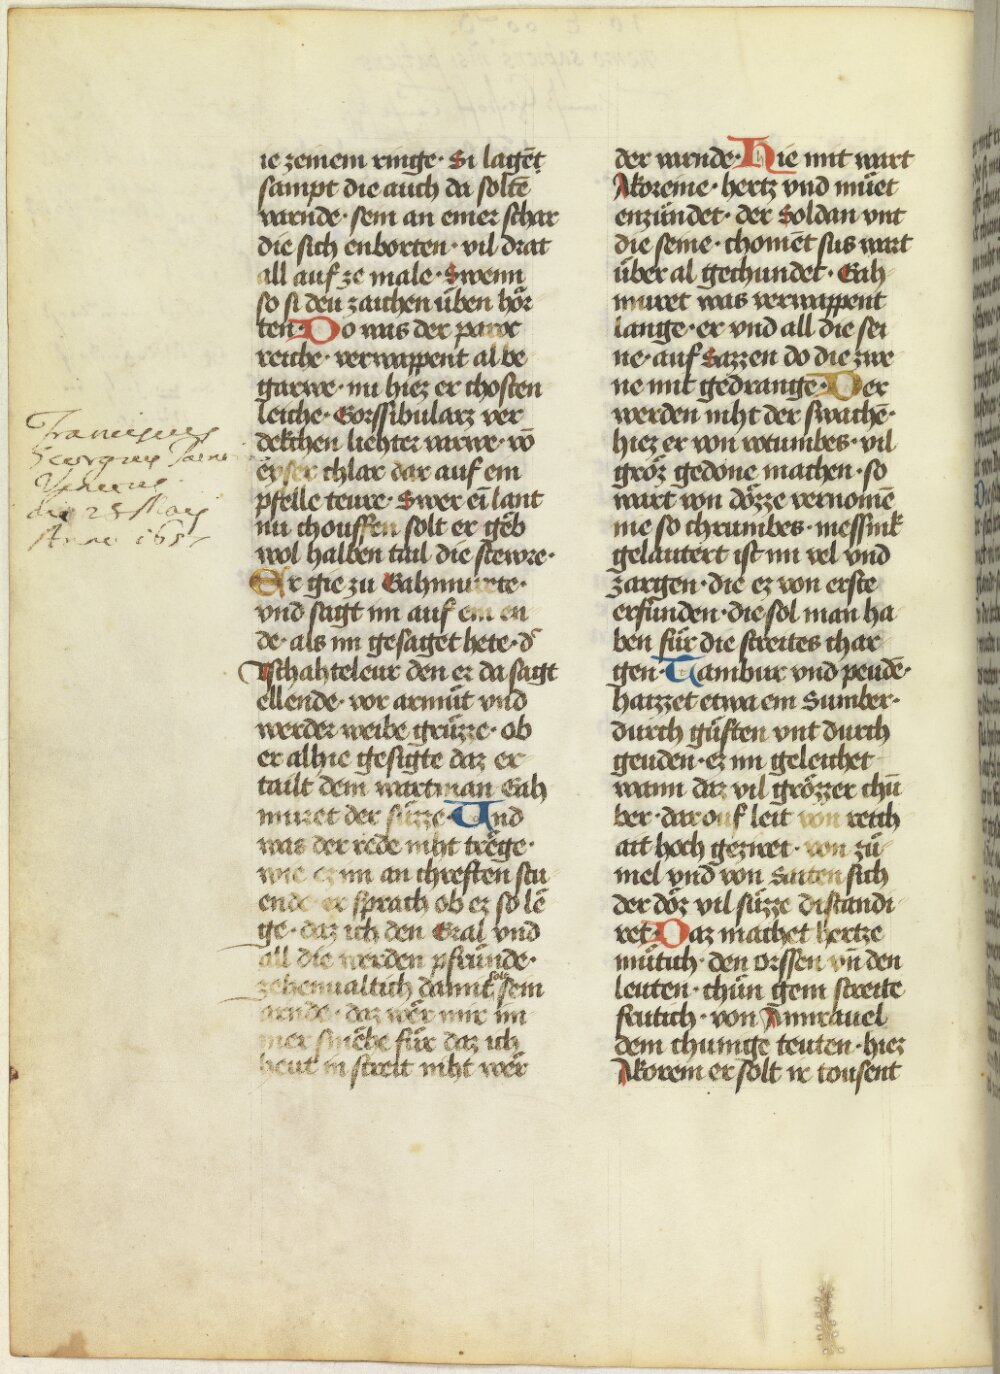 ie zeinem ringe · Si lagēt
sampt die auch da soltē
varnde · sein an einer schar
die sich enborten · vil drat
all auf ze male · Swenn
so si den zaichen üben hör
ten · Do was der paroc
reiche · verwappent albe
garwe · nu hiez er chosten
leiche · Gorssibularz ver
dekchen liehter varwe · vō
eyser chlar dar auf ein
pfelle teure · Swer ei lant
nu chouffen solt er geb
wol halben tail die stewre ·
Er gie zu Gahmurete ·
vnd sagt im auf ein en
de · als im gesaget hete · d
Tschahteleur den er da sagt
ellende · vor armüt vnd
werder weibe grüzze · ob
er alhie gesigte daz er
tailt dem wartman Gah
muret der süzze · Und
was der rede niht trege ·
wie ez im an chreften stu
ende er sprach ob ez so le
ge · daz ich den Gral vnd
all die werden pfründe ·
zehenualtich damit solt sein
arnde · daz wer mir im
mer smehe für daz ich
heut in streit niht wer
der varnde · Hie mit wart
Akoreine · hertz vnd müet
enzündet · der Soldan vnt
die seine · choment sus wart
über al gechundet · Gah
muret was verwappent
lange · er vnd all die sei
ne · auf Sazzen do die zwe
ne mit gedrange · Der
werden niht der swachē ·
hiez er von rotumbes · vil
gröz gedöne machen · so
wart von dözze vernomē
nie so chrumbes · messink
gelautert ist im vel vnd
zargen · die ez von erste
erfunden · die sol man ha
ben für die streites char
gen · Tambur vnd peudē ·
hatzzet etwa ein Sumber ·
durch güften vnt durch
geuden · ez im geleichet
wann daz vil grözzer chü
ber · darouf leit von reich
ait hoch gezwet · von zü
mel vnd von Saiten sich
der döz vil süzze distandi
ret · Daz machet hertze
mütich · den orssen vn den
leuten · thün gein streite
freutich · von Amrauel
dem chunige teuten · hiez
Akorein er solt ir tousent
Franciscus
Georgius
Venecus
die 28 May
Anno 165